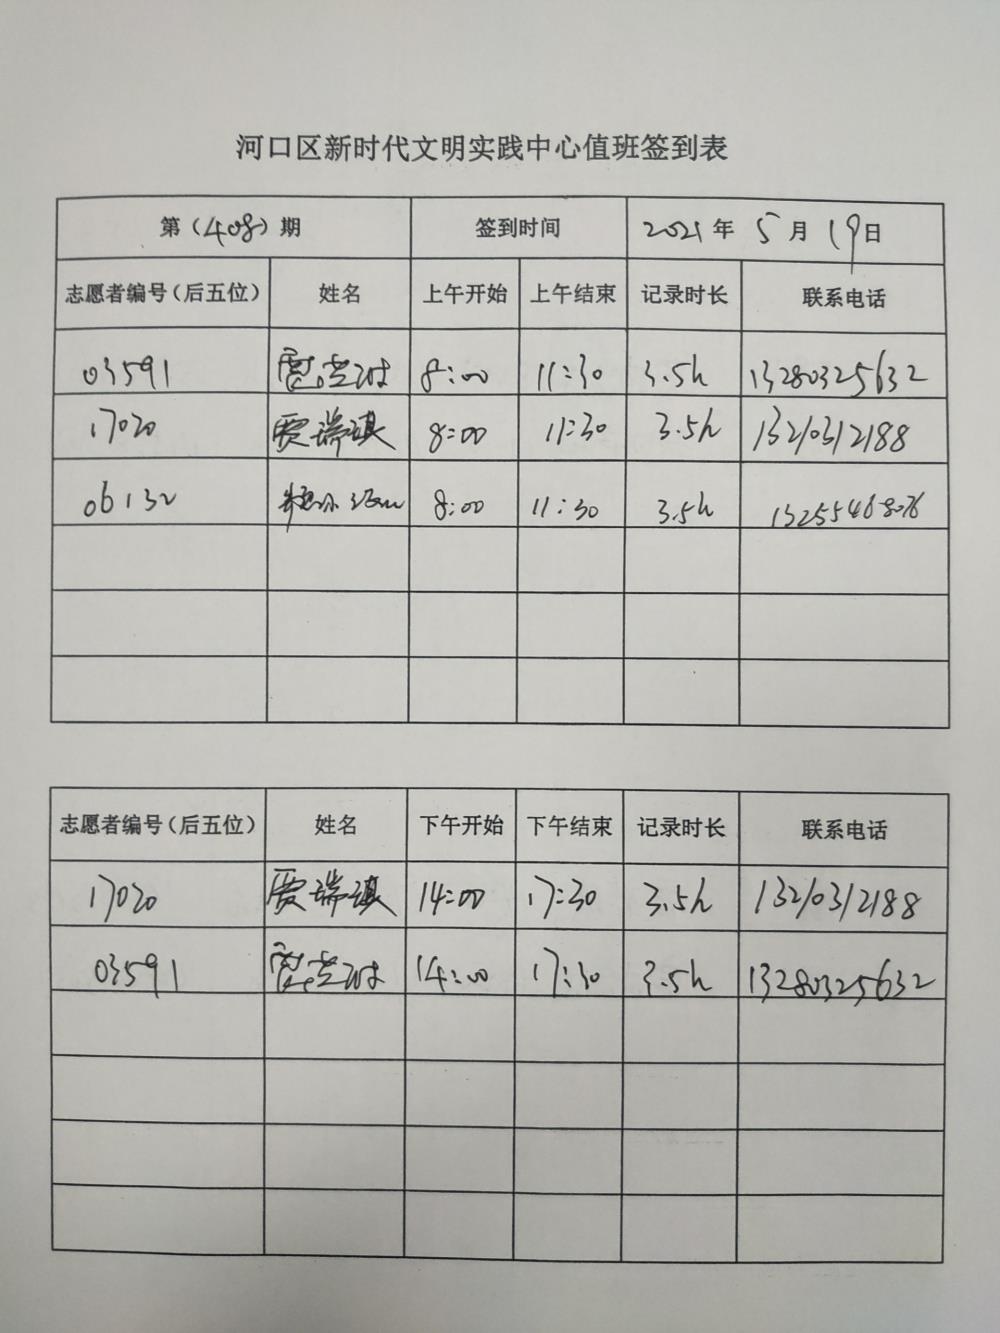 河口区新时代文明实践中心值班签到表
第（408）期 签到时间 2021年 5月 19日
志愿者编号（后五位） 姓名 上午开始 上午结束 记录时长 联系电话
03591 8:00 11:30 3.5h 13280325632
17020 贾瑞琪 8:00 11:30 3.5h 13210312188
06132 8:00 11:30 3.5h 13255468076
志愿者编号（后五位） 姓名 下午开始 下午结束 记录时长 联系电话
17020 贾瑞琪 14:00 17:30 3.5h 13210312188
03591 14:00 17:30 3.5h 13280325632